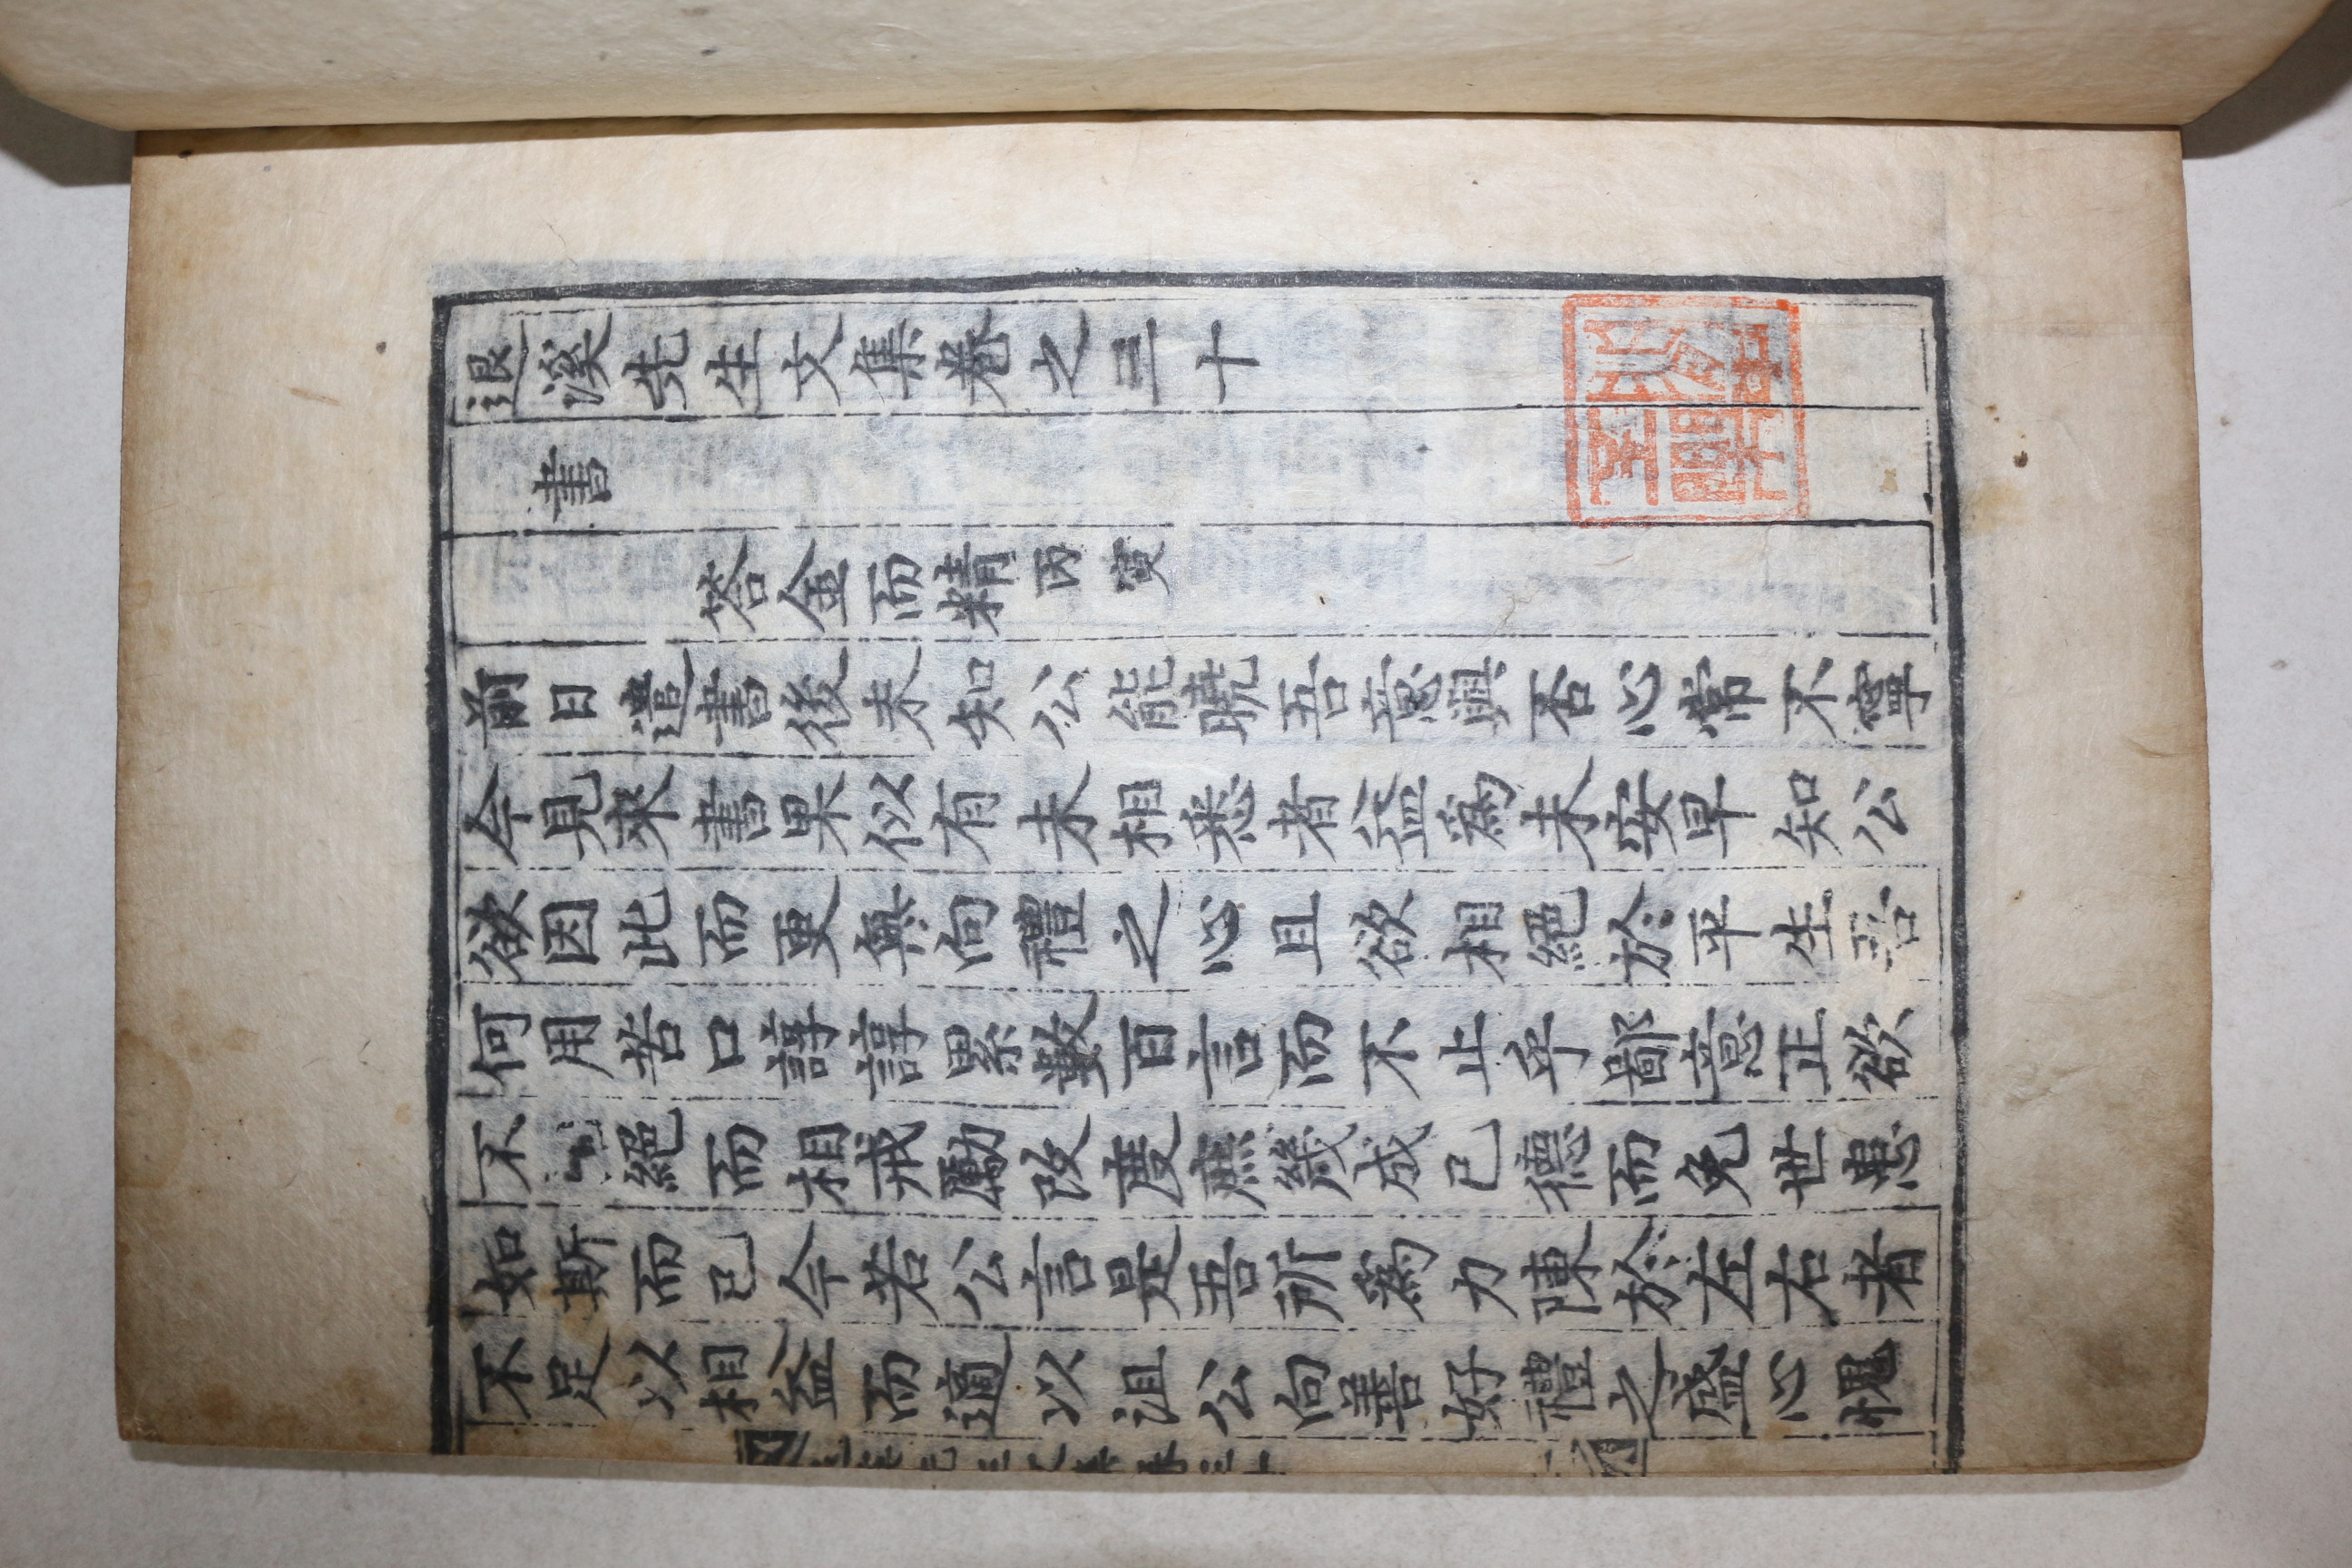 退溪先生文集卷之三十
書
答金而精丙寅
前日遣書後未知公能聽吾意與否心常不寧
今見來書果似有未相悉者益爲未安早知公
欲因此而更無向禮之心且欲相絕於平生吾
何用苦口諄諄累數百言而不止乎鄙意正欲
不絕而相戒勵改度庶幾成己德而免世患
如斯而已今若公言是吾所爲力陳於左右者
不足以相益而適以沮公向善好禮之盛心愧